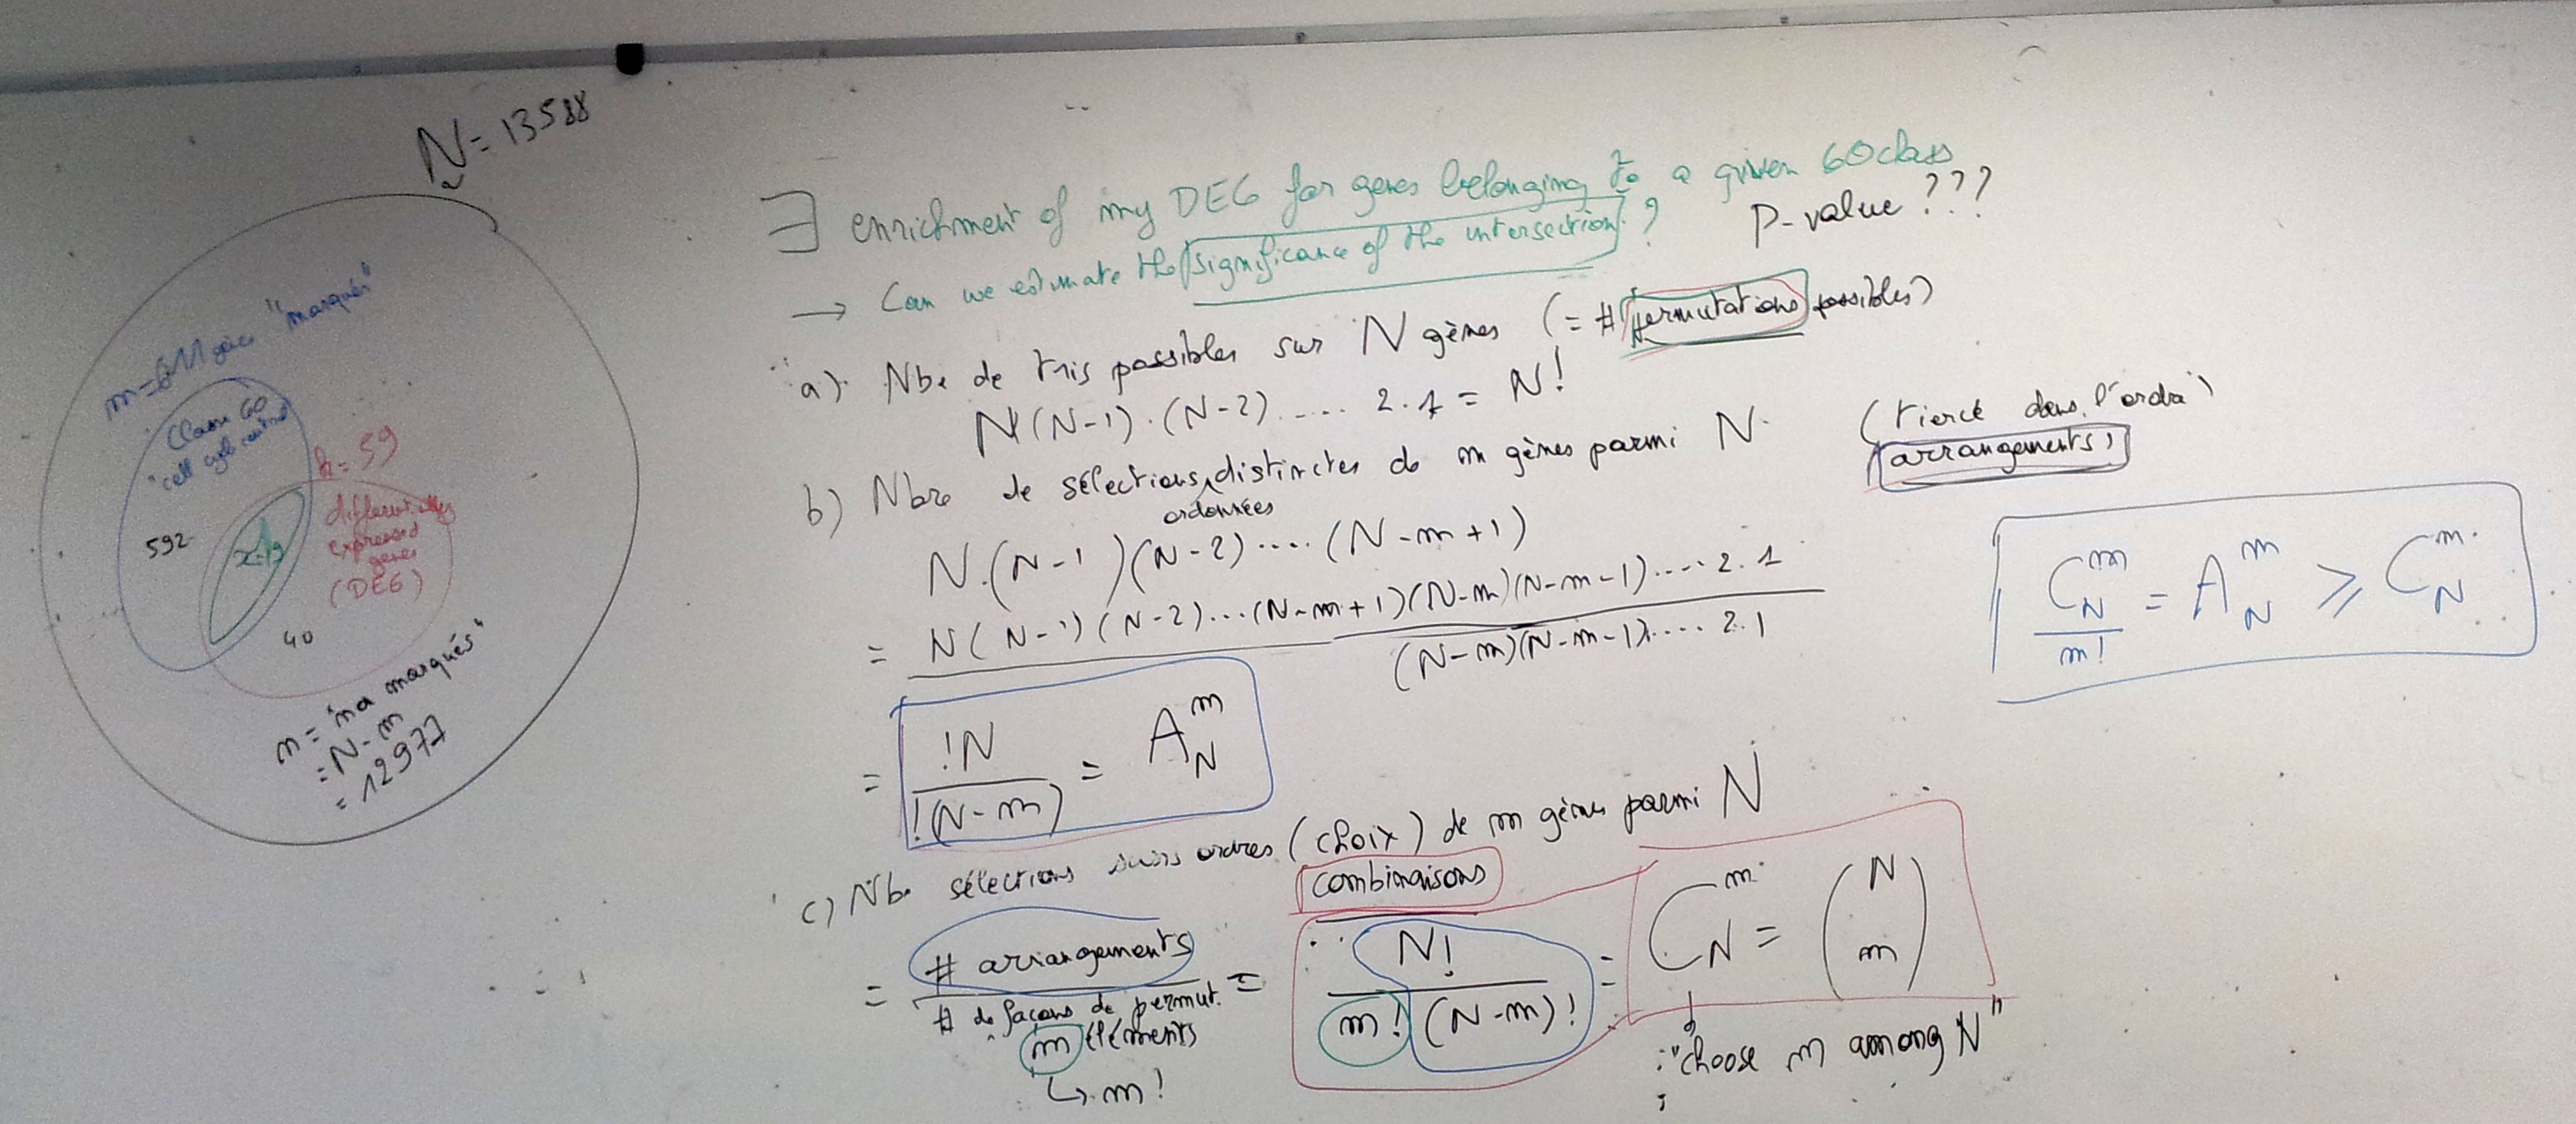 N = 13588
m = 611 gènes "marqués"
Classe GO
"cell cycle control"
k = 59
differentially
expressed
genes
(DEG)
592
x=19
40
n = "non marqués"
= N-m
= 12977
∃ enrichment of my DEG for genes belonging to a given GO class
→ Can we estimate the significance of the intersection ?
P-value ???
a) Nbe de tris possibles sur N gènes (= # permutations possibles)
N(N-1).(N-2)..... 2.1 = N!
b) Nbre de sélections distinctes de m gènes parmi N.
ordonnées
(tiercé dans l'ordre)
arrangements
N.(N-1)(N-2)....(N-m+1)
= N(N-1)(N-2)...(N-m+1)(N-m)(N-m-1)....2.1
(N-m)(N-m-1)....2.1
= !N / !(N-m) = A_N^m
C_N^m / m! = A_N^m ⩾ C_N^m
c) Nbe sélections sans ordres (choix) de m gènes parmi N
combinaisons
= # arrangements / # de façons de permut. m éléments = N! / m!(N-m)! = C_N^m = (N m)
↳ m!
"choose m among N"